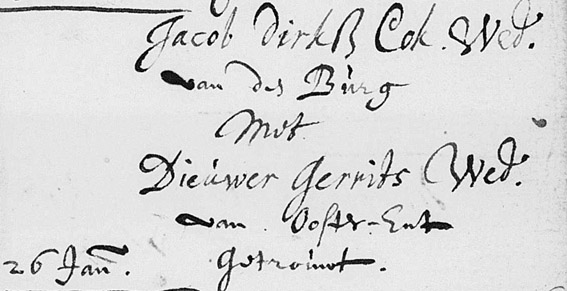 Jacob dirkß Cok. Wed.
van den Búrg
Met
Dieúwer Gerrits Wed.
van Ooster-Ent
26 Jan. Getroúwt.